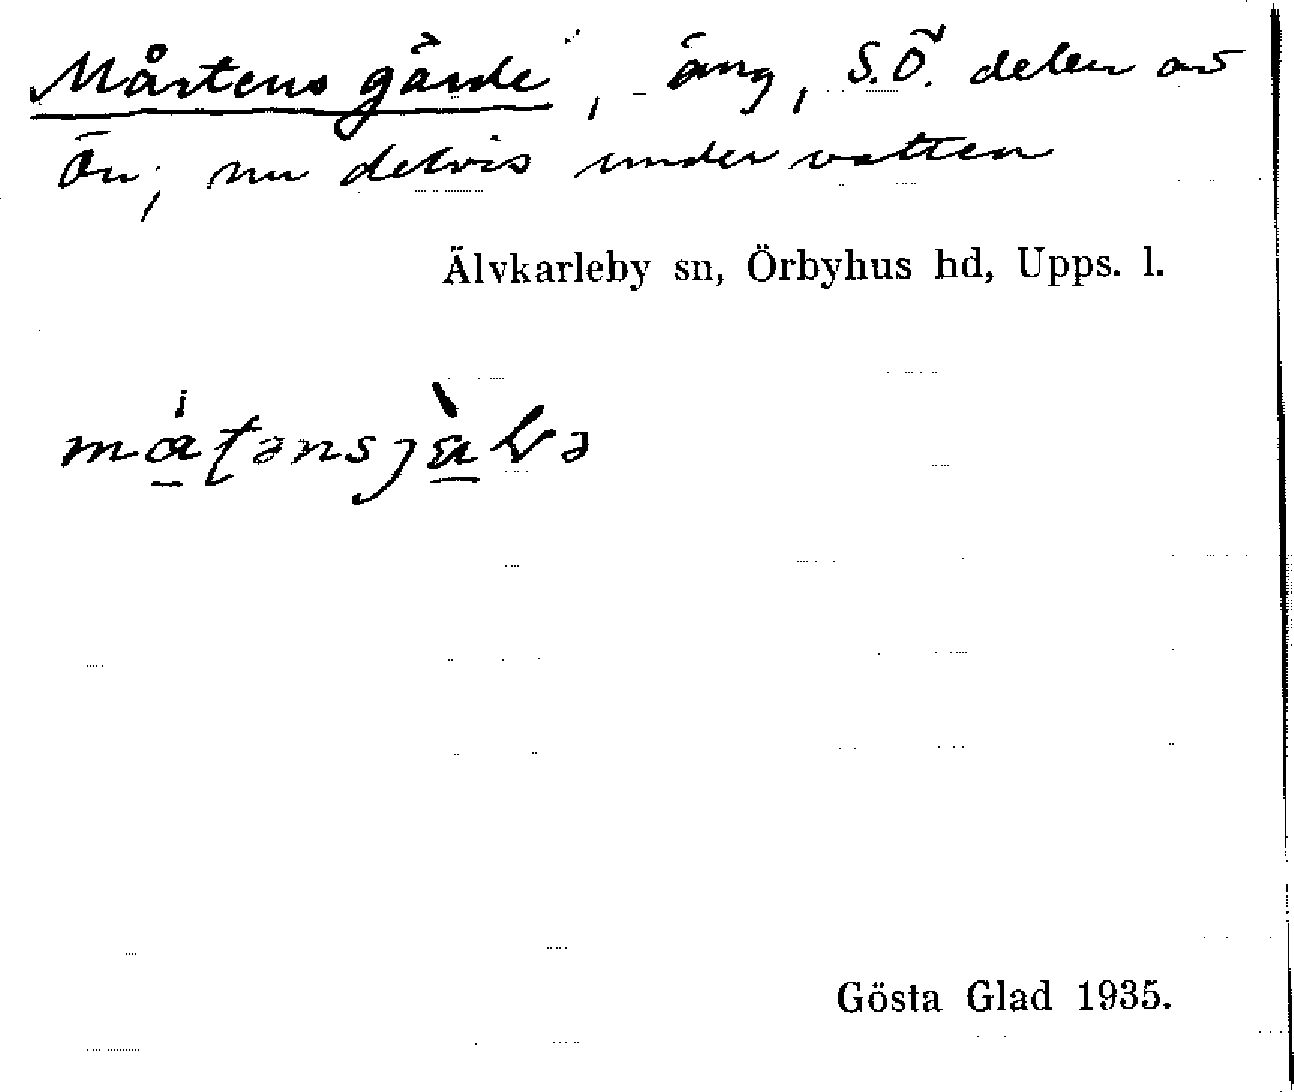 Mårtens gärde, äng, S.Ö. delen av
Ön; nu delvis under vatten
Älvkarleby sn, Örbyhus hd, Upps. l.
Gösta Glad 1935.